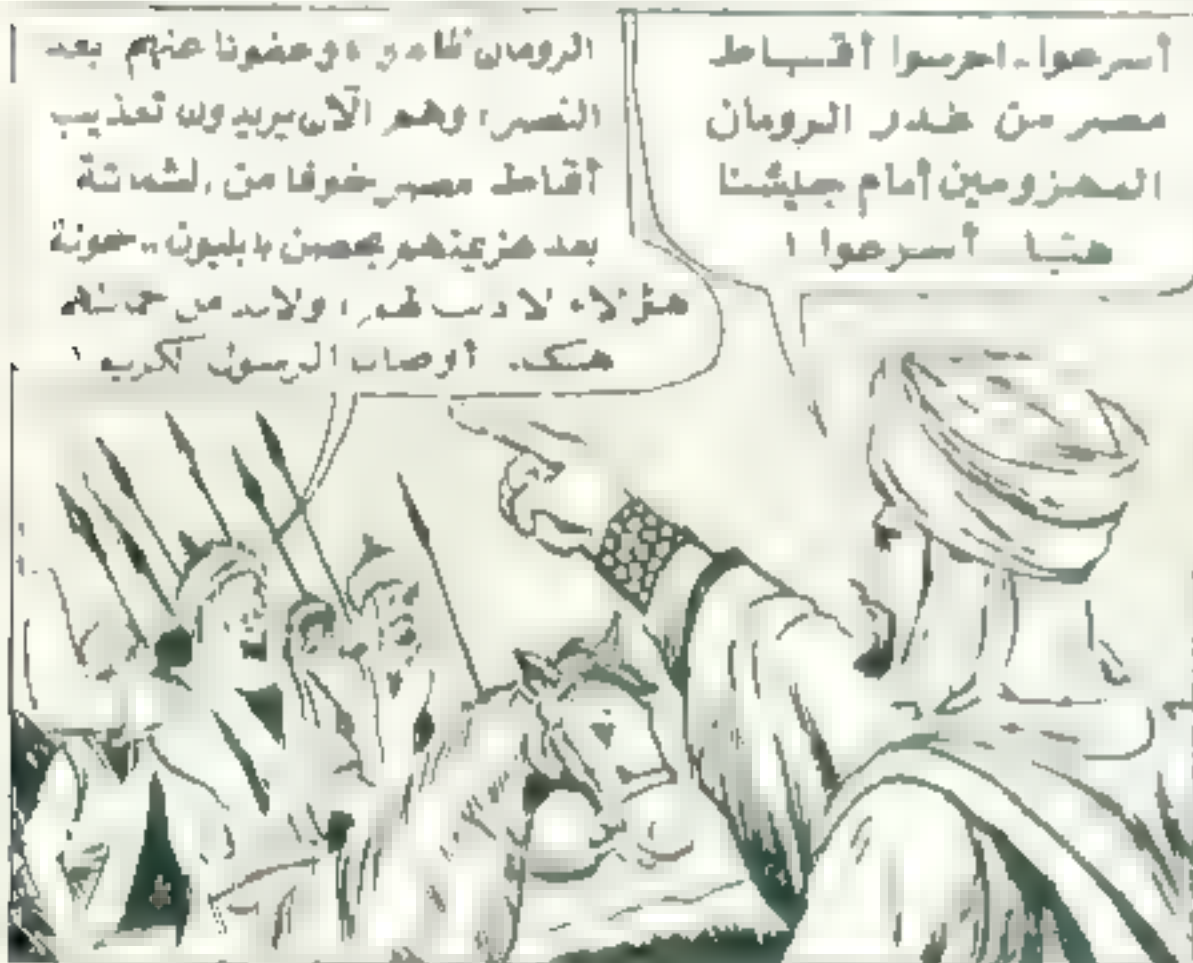 أسرعوا .. احرسوا أقباط
مصر من غدر الرومان
المهزومين أمام جيشنا
هيا أسرعوا !
الرومان وعفونا عنهم بعد
النصر، وهم الآن يريدون تعذيب
أقباط مصر خوفا من الشماتة
بعد هزيمتهم بحصن بابليون ..
هؤلاء لا لهم، ولابد من
أوصانا الرسول الكريم !